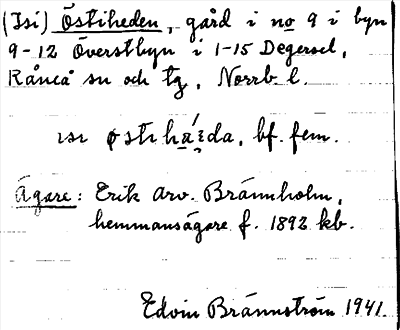 (Isi) Östiheden, gård i no 9 i byn
9-12 Överstbyn i 1-15 Degersel,
Råneå sn och tg, Norrb. l.
ısı østıhä́da, bf. fem.
Ägare: Erik Arv. Brännholm,
hemmansägare f. 1892 kb.
Edvin Brännström 1941.